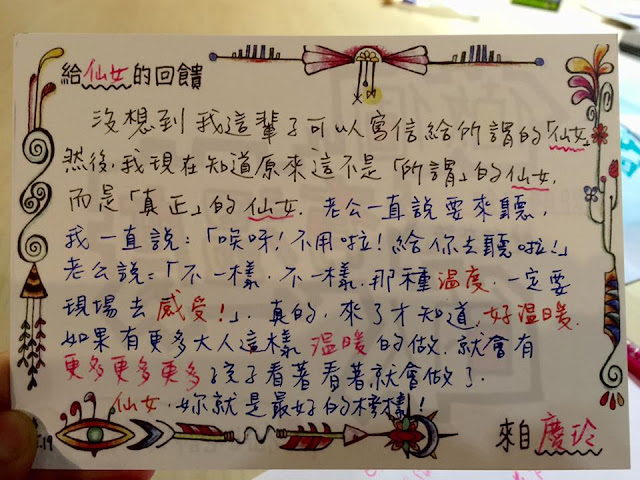 給仙女的回饋
沒想到我這輩子可以寫信給所謂的「仙女」
然後,我現在知道原來這不是「所謂」的仙女,
而是「真正」的仙女. 老公一直說要來聽,
我一直說:「唉呀!不用啦!給你去聽啦!」
老公說:「不一樣,不一樣,那種溫度,一定要
現場去感受!」. 真的,來了才知道,好溫暖.
如果有更多大人這樣溫暖的做,就會有
更多更多更多孩子看著看著就會做了.
仙女,妳就是最好的榜樣!
來自慶玲